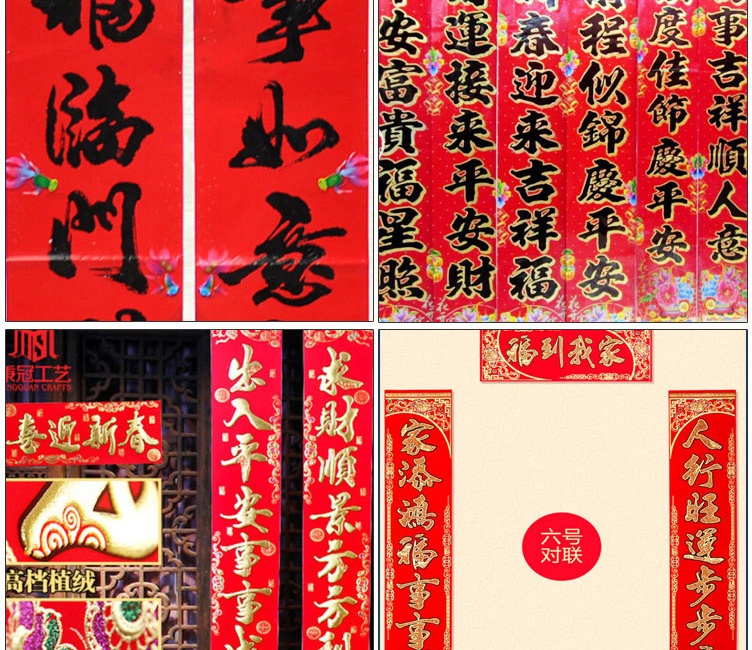 福臨門
事如意
安富貴福星照
運接来平安財
春迎来吉祥福
程似錦慶平安
度佳節慶平安
事吉祥順人意
冠工艺
喜迎新春
高档植绒
出入平安事事
求財順景方方
福到我家
家添鴻福事事
六号
对联
人行旺運步步